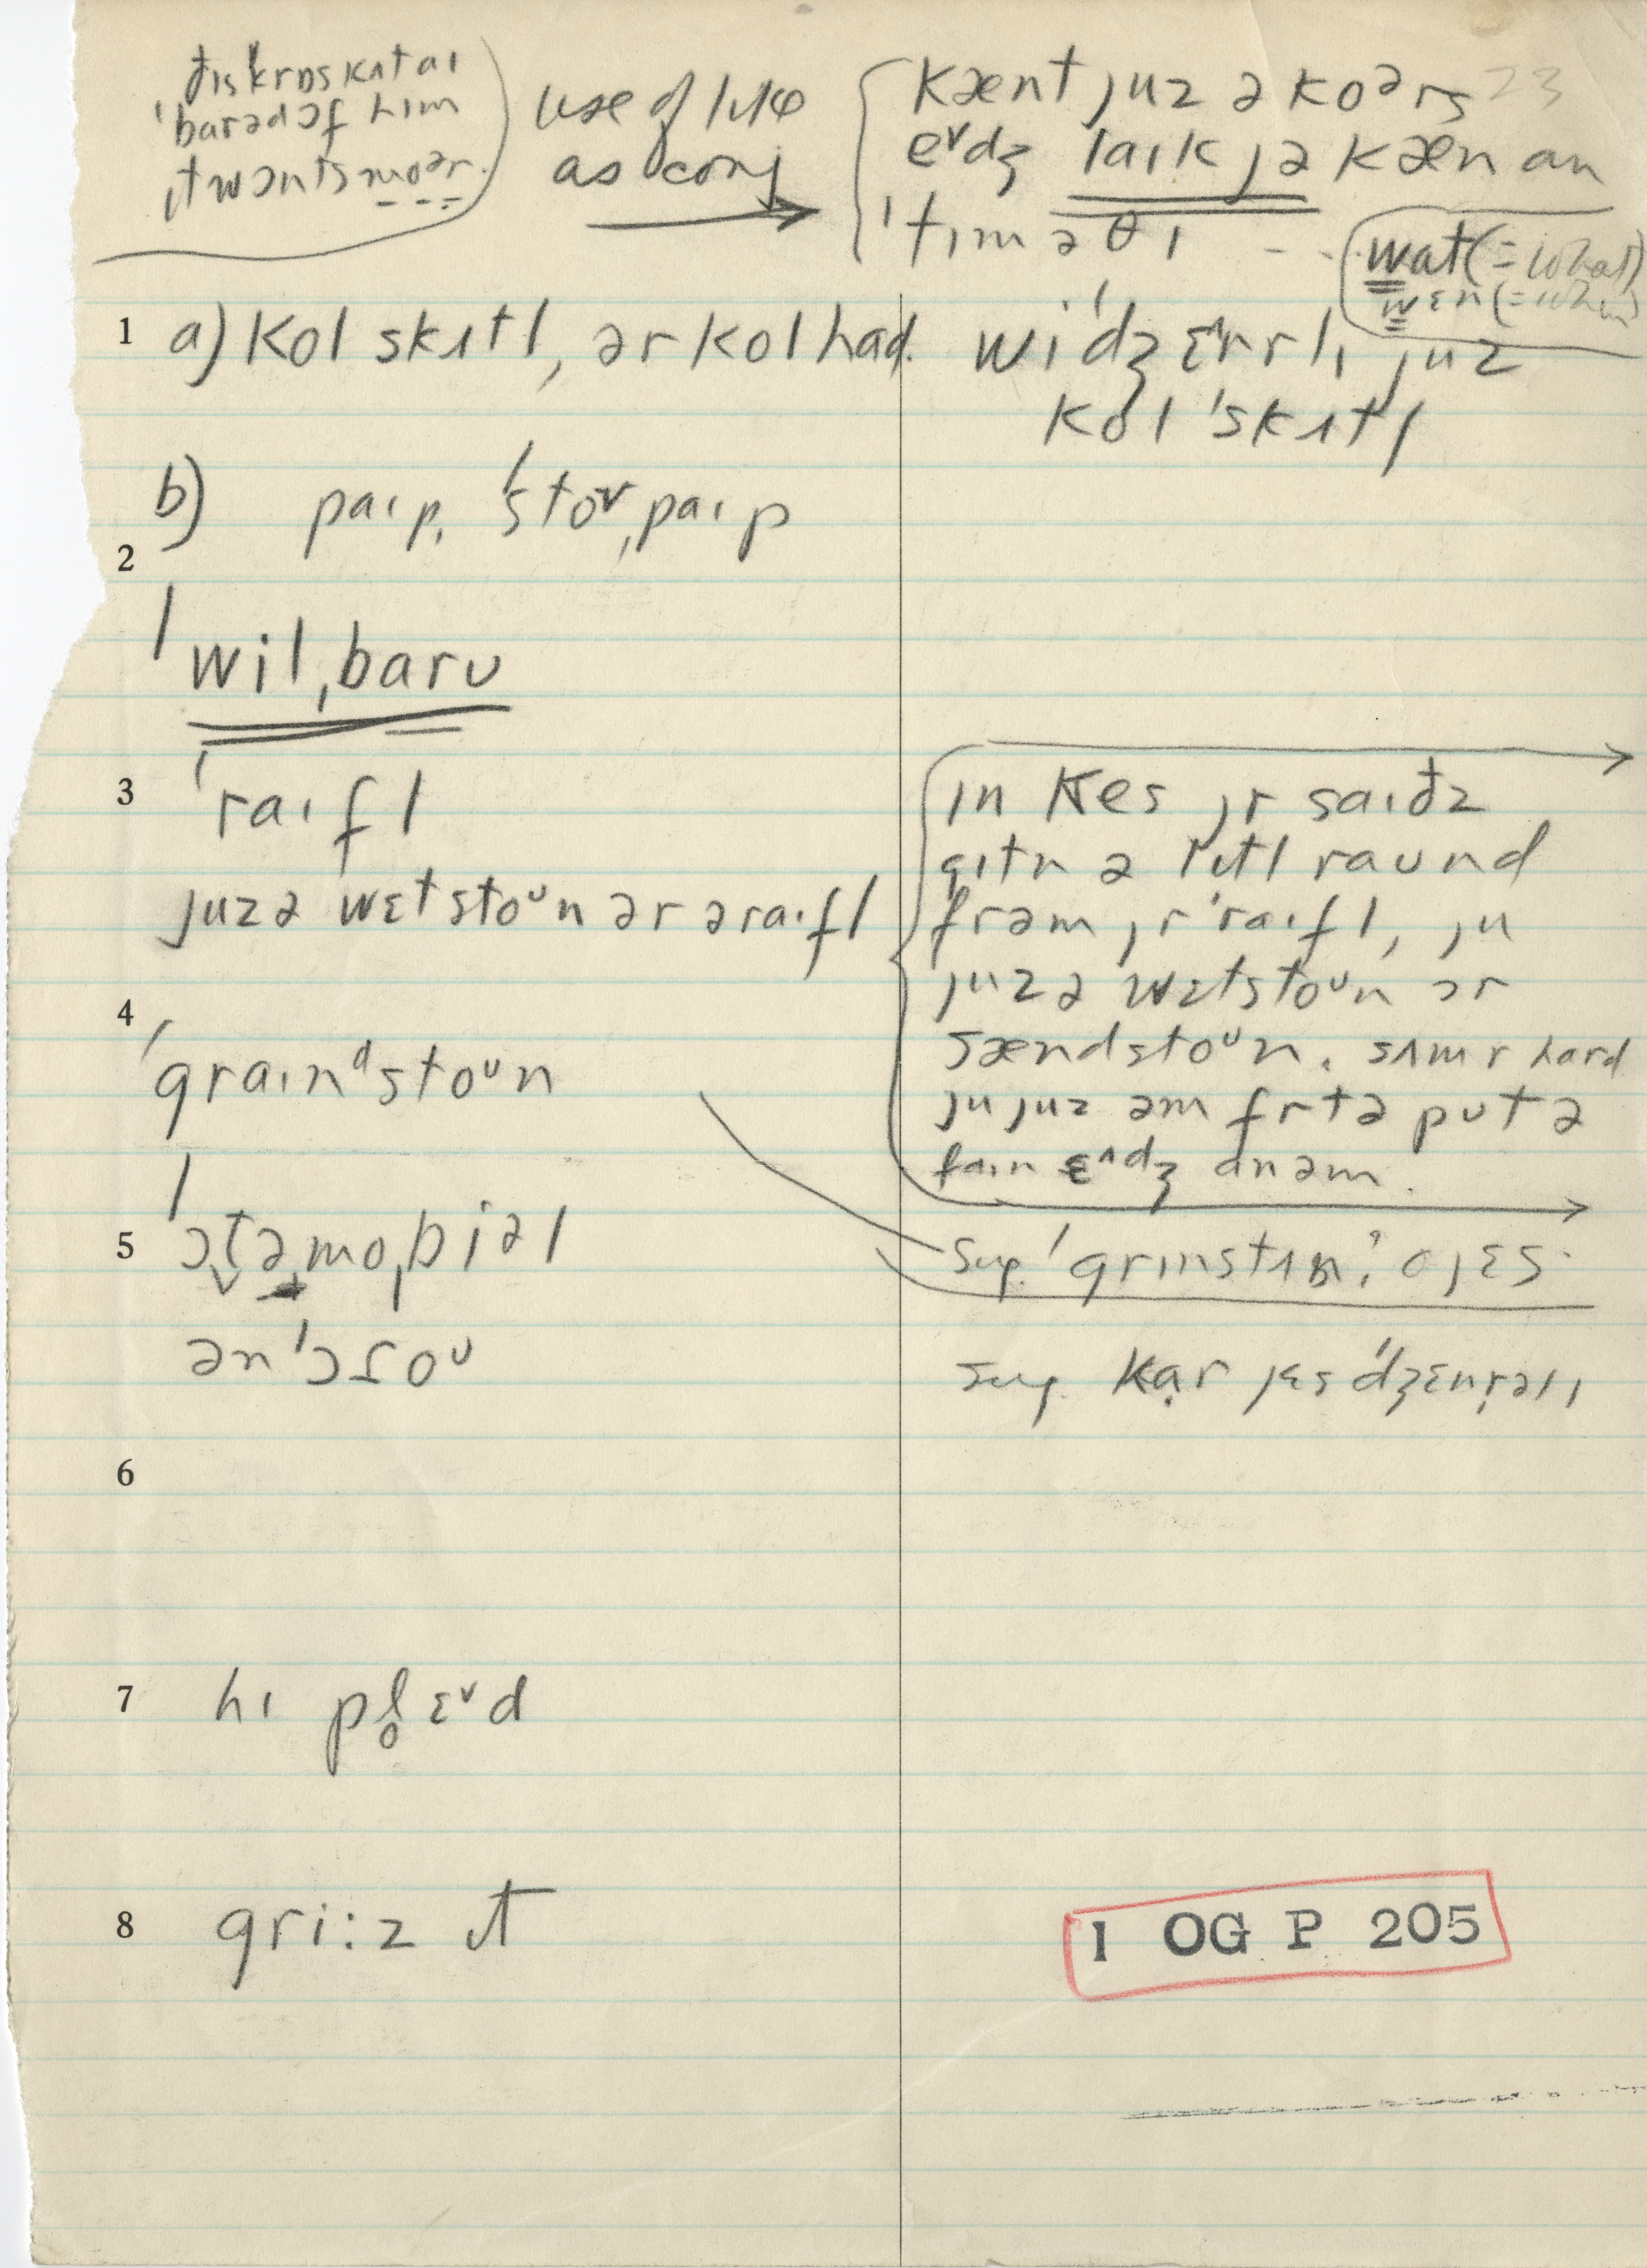 ðɪs krɒs kʌt aɪ
ˈbarəd ɔf hɪm
ɪt wɔnts moər.
use of like
as conj
kænt juz ə koərs 23
eᵛdʒ laɪk jə kæn an
ˈtɪməθɪ - -
wat (= what)
wɛn (= when)
1 a) kol skɪtl, ər kol had.
wi ˈdʒɛnrlɪ juz
kol ˈskɪtl
b) paɪp, ˈstoᵛˌpaɪp
2
ˈwilˌbarʊ
3 ˈraɪfl
juz ə wɛtstoᵘn ər ə raɪfl
ɪn kes jr saɪðz
gɪtn ə lɪtl raʊnd
frəm jr ˈraɪfl, ju
juz ə wɛtstoᵘn ər
sændstoᵘn. sʌmr hard
ju juz əm frtə pʊt ə
faɪn ɛ^dʒ ɑn əm.
4 ˈgraɪnᵈstoᵘn
sug. ˈgrɪnstʌn? o jɛs.
5 ˈɔtəmoˌbiəl
ən ˈɔʃoᵘ
sug. kar jɛs ˈdʒɛnrəlɪ
6
7 hɪ pl̥ɛᵛd
8 gri:z ɪt
1 OG P 205